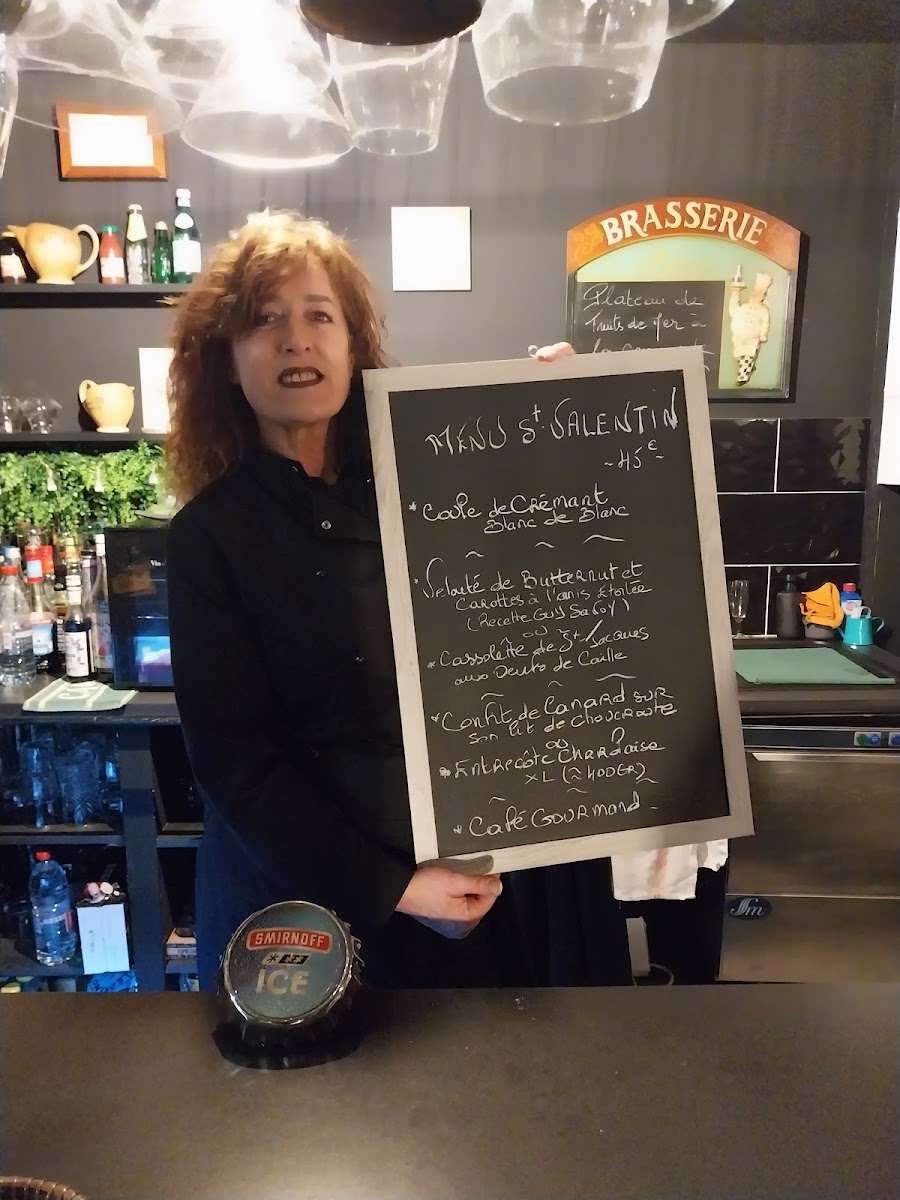 BRASSERIE
Plateau de
Fruits de Mer à
MENU St VALENTIN
~ 45 € ~
* Coupe de Crémant
Blanc de Blanc
* Velouté de Butternut et
Carottes à l'anis étoilée
(Recette Guy Savoy)
ou
* Cassolette de St Jacques
aux Oeufs de Caille
* Confit de Canard sur
son lit de Choucroute
ou
* Entrecôte Charolaise
XL (≈ 400 Gr)
* Café Gourmand
SMIRNOFF
ICE
Sm